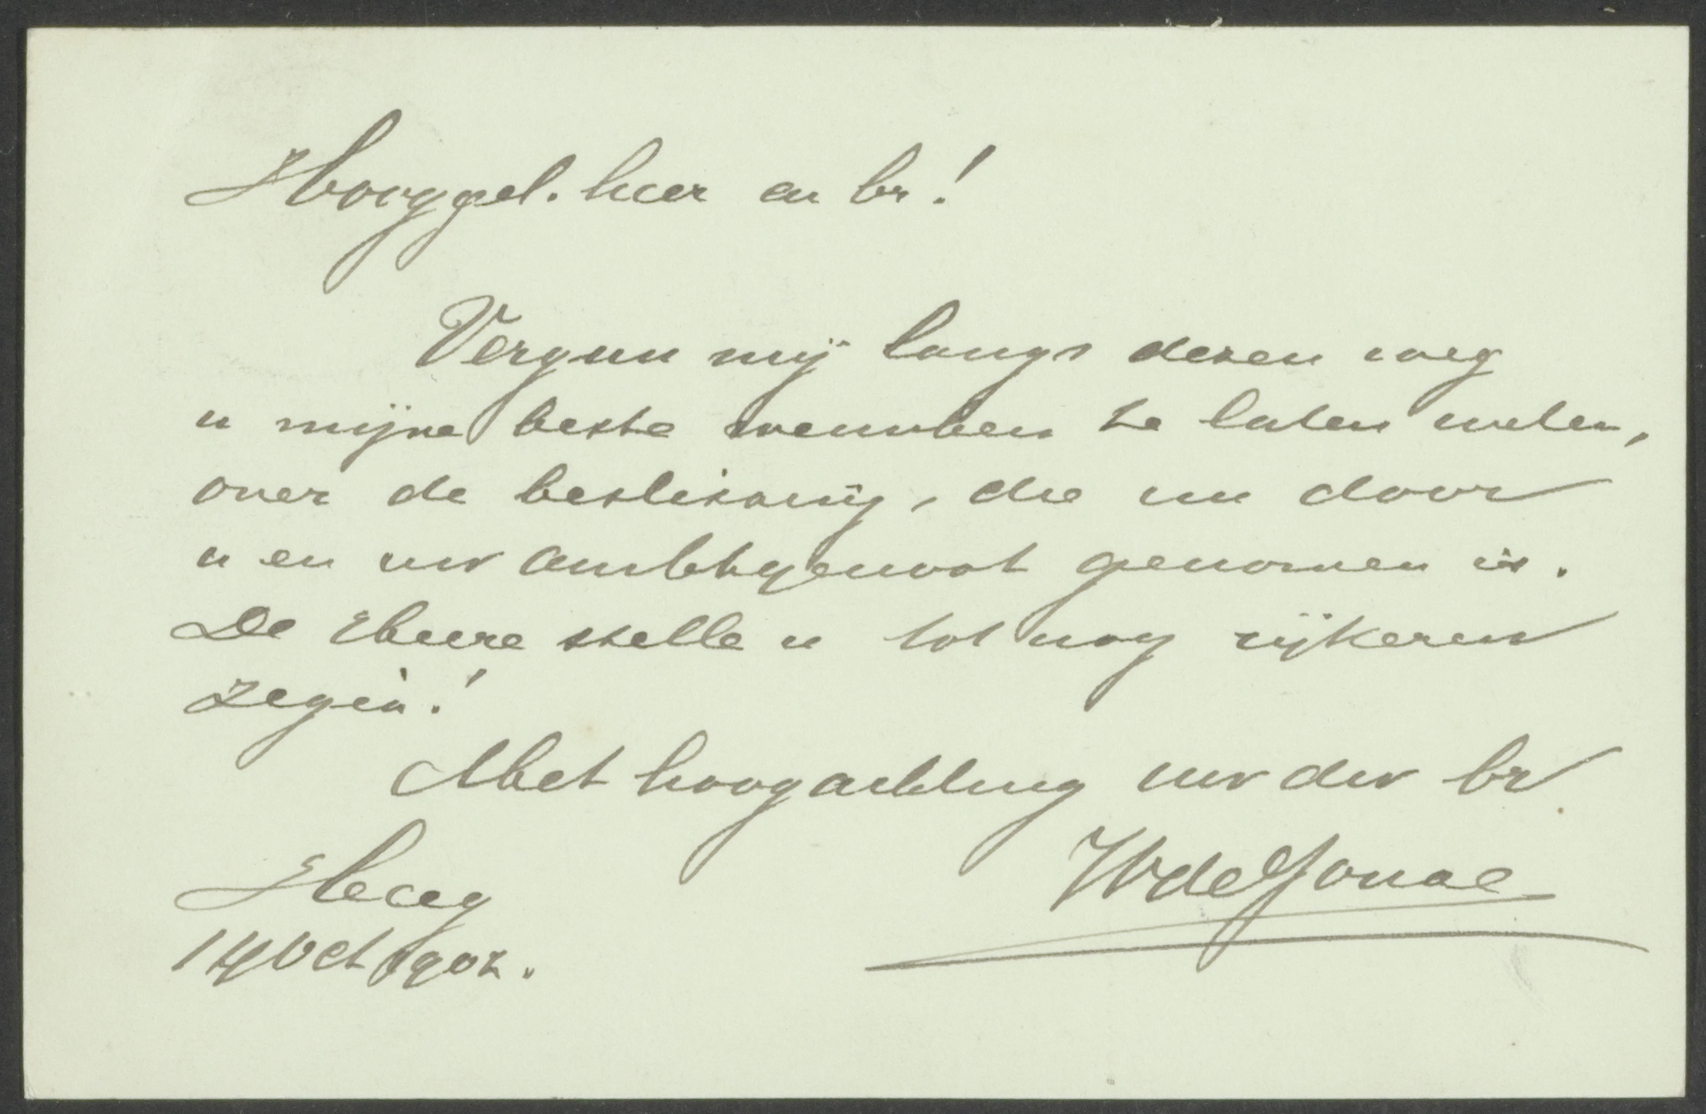 Hooggel. heer en br!
Vergun mij langs dezen weg
u mijne beste wenschen te laten weten,
over de beslissing, die nu door
u en uw ambtsgenoot genomen is.
De Heere stelle u tot nog rijkeren
zegen!
Met hoogachting uw dw br
WdeJonge
Heeg
14 Oct 1902.